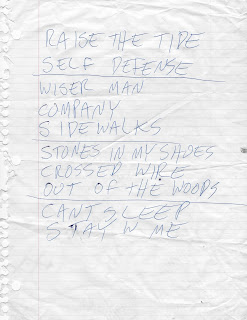 RAISE THE TIDE
SELF DEFENSE
WISER MAN
COMPANY
SIDEWALKS
STONES IN MY SHOES
CROSSED WIRE
OUT OF THE WOODS
CANT SLEEP
STAY W ME